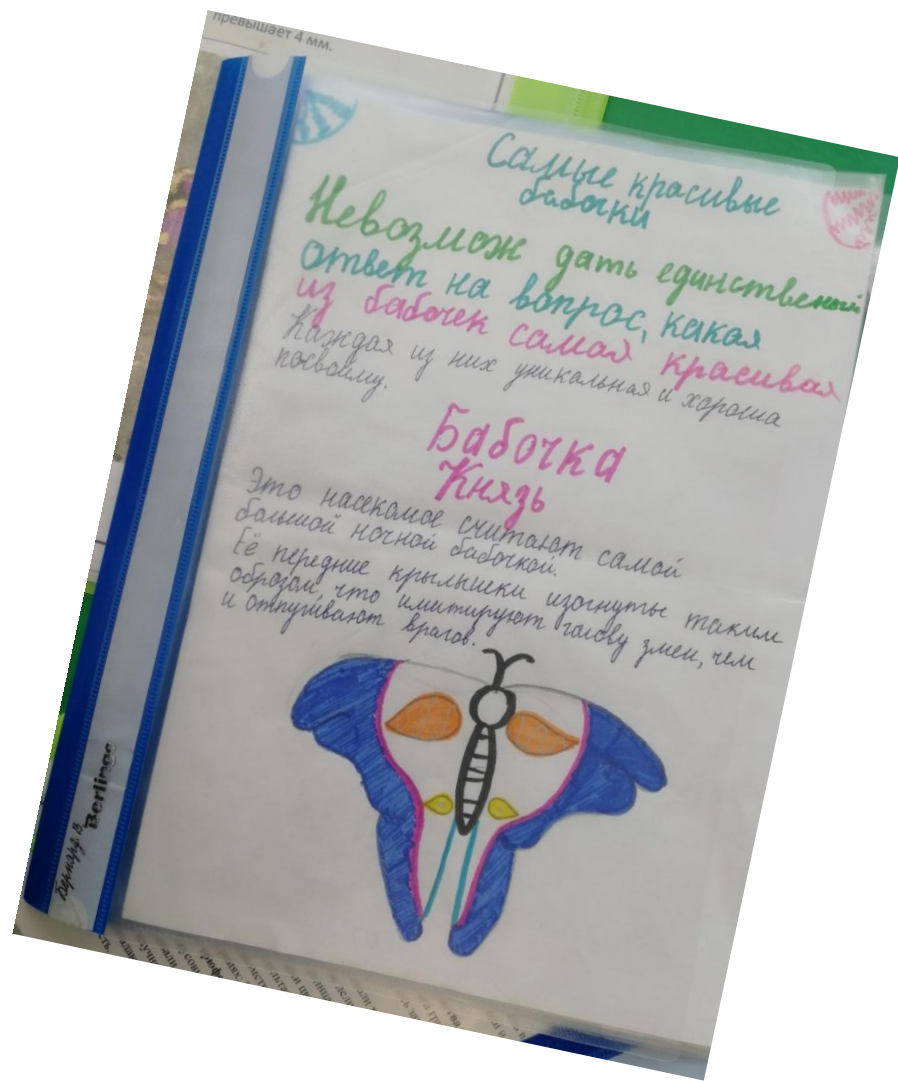 превышает 4 мм.
Самые красивые
бабочки
Невозмож дать единственый
ответ на вопрос, какая
из бабочек самая красивая
Каждая из них уникальная и хороша
посвойму.
Бабочка
Князь
Это насекомое считают самой
большой ночной бабочкой.
Её передние крылышки изогнуты таким
образом, что имитируют голову змеи, чем
и отпугивают врагов.
Berlingo
Бернард. В